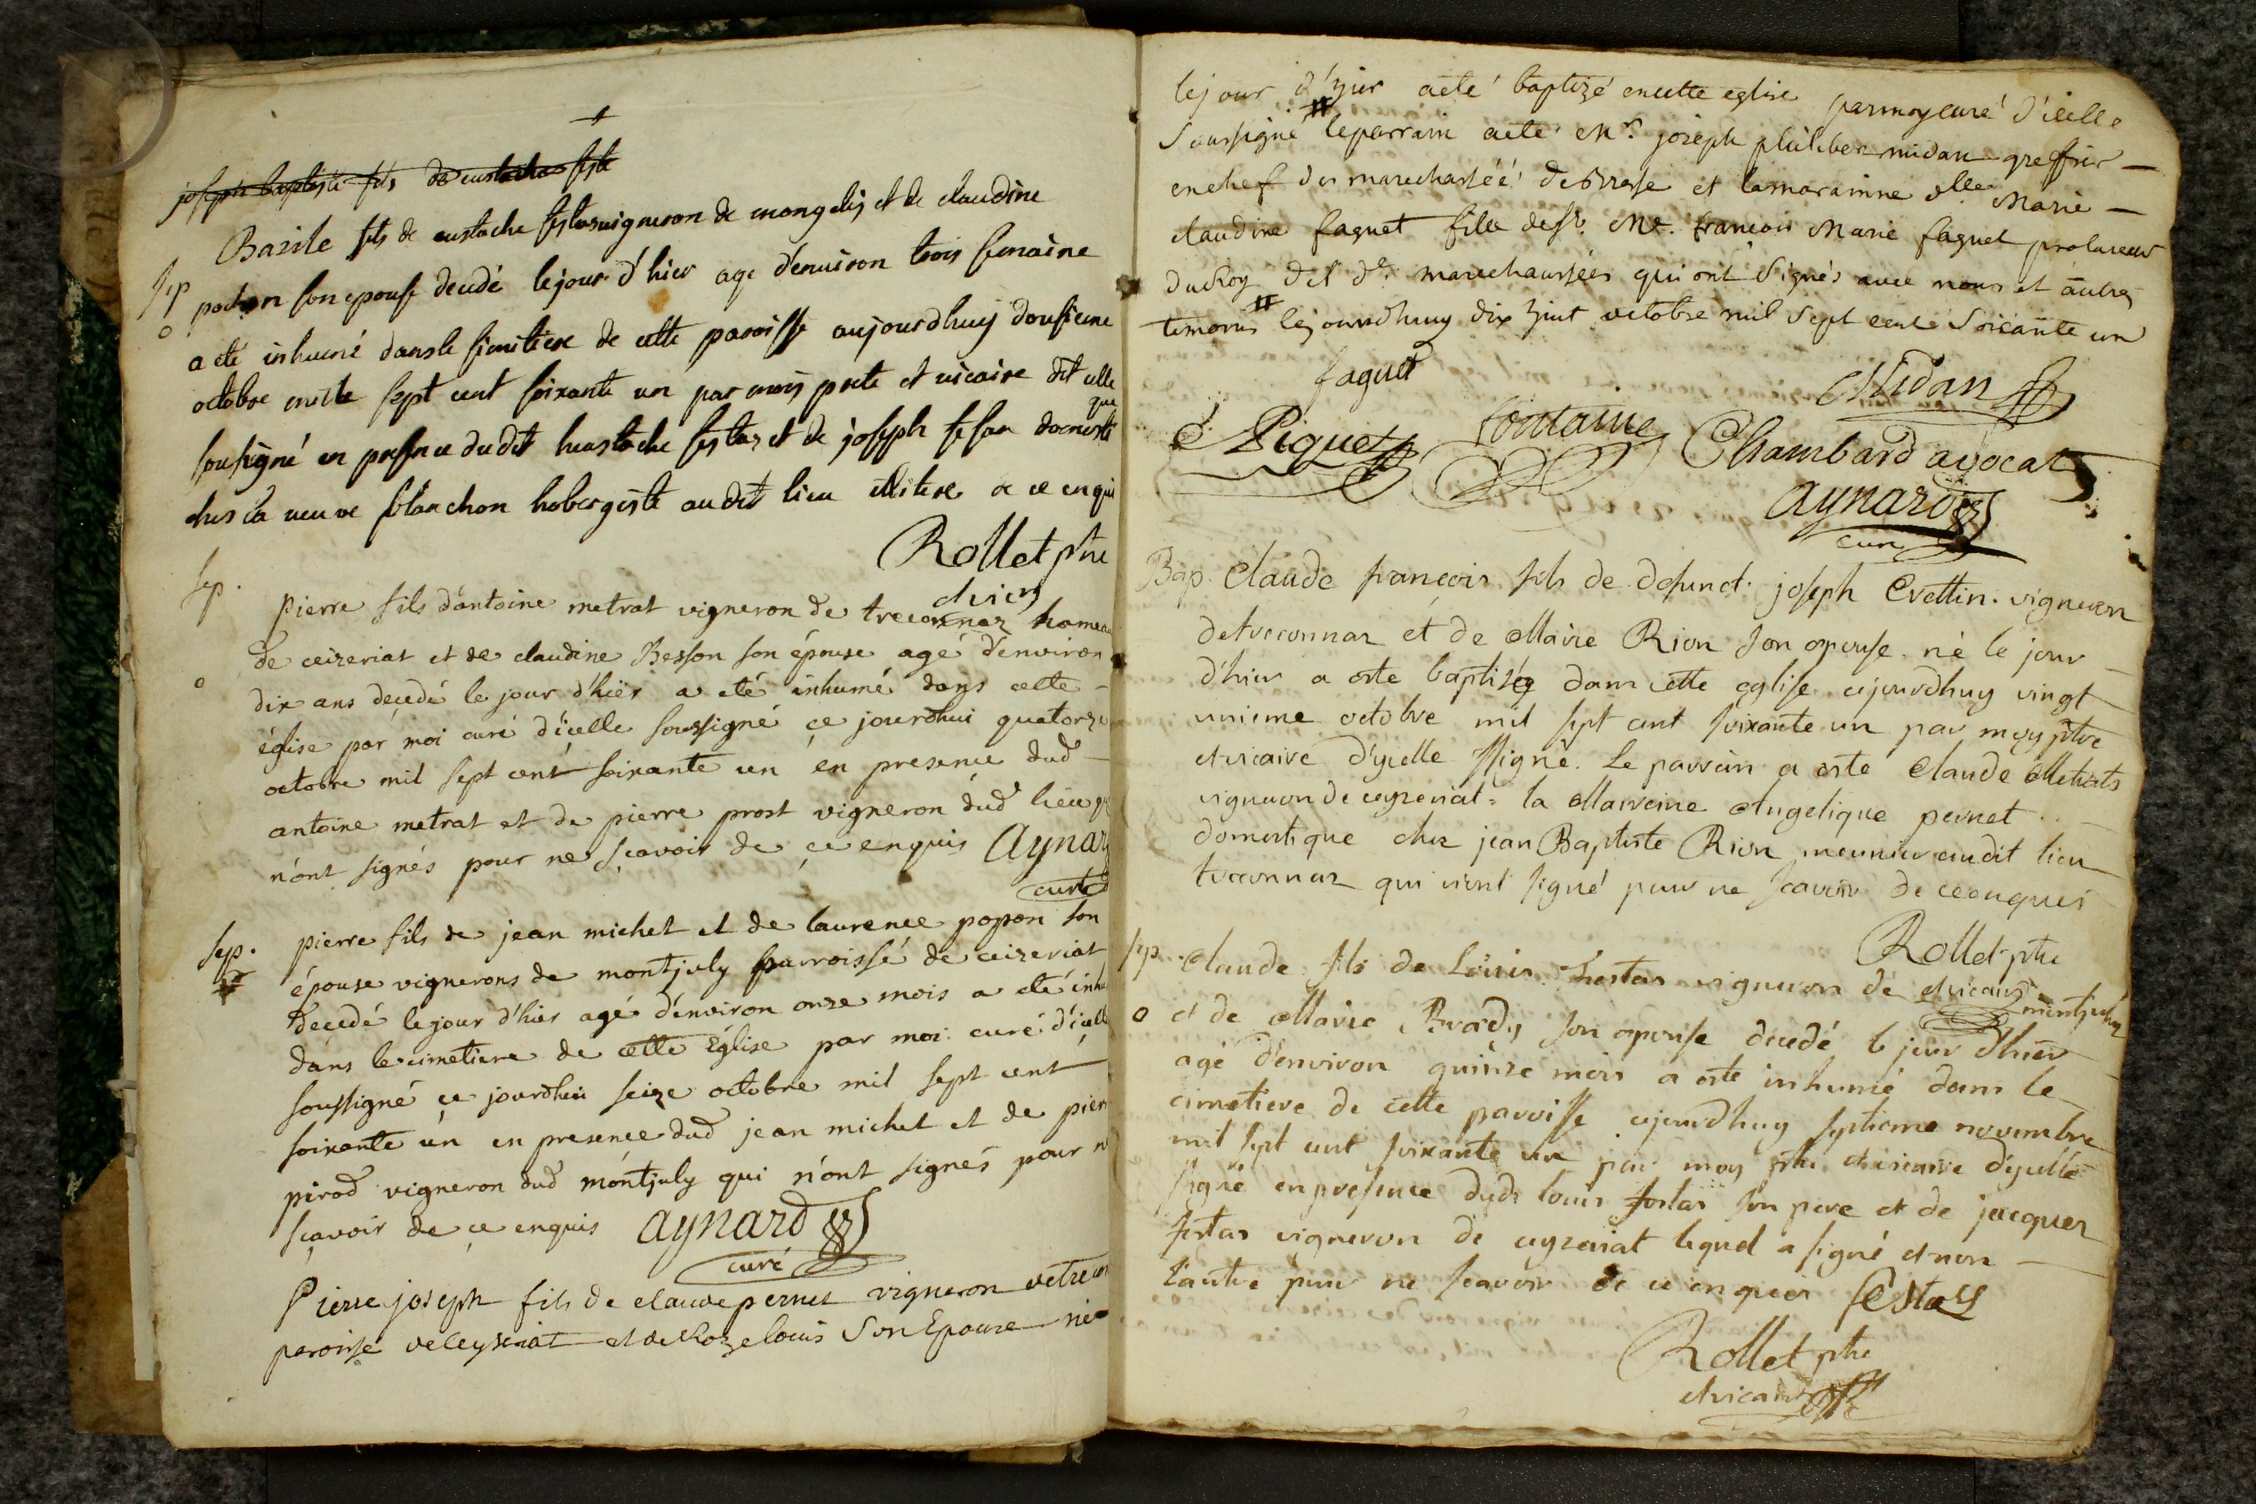 joseph baptiste fils de eustache festa
Basile fils de eustache festas vigneron de mongelis et de claudine
sep
pochon son epouse decedé le jour d'hier age d'environ trois semaine
a eté inhumé dans le simitiere de cette paroisse aujourdhuy dousieme
octobre mille sept cent soixante un par moy prete et vicaire dit celle
sousigné en presence dudit heustache festas et de joseph fesan domesti
que
ches la veuve blanchon hobergiste audit lieu illitere a ce enqui
Rollet ptre
et vicr
sep.
pierre fils d'antoine metrat vigneron de treconnaz hameau
de ceizeriat et de claudine Besson son épouse agé d'environ
dix ans decedé le jour d'hier a eté inhumé dans cette
église par moi curé d'icelle soussigné ce jourdhui quatorze
octobre mil sept cent soixante un en presence dud
antoine metrat et de pierre prost vigneron dud lieu q
n'ont signés pour ne sçavoir de ce enquis Aynar
curé
sep.
pierre fils de jean michel et de laurence popon son
épouse vignerons de montjuly parroisse de ceizeriat
decedé le jour d'hier agé d'environ onze mois a eté inhu
dans le cimetiere de cette église par moi curé d'icell
soussigné ce jourdhui seize octobre mil sept cent
soixante un en presence dud jean michel et de pierr
pirod vigneron dud montjuly qui n'ont signés pour n
sçavoir de ce enquis aynard
curé
Pierre joseph fils de claude pernet vigneron de trecon
paroisse de ceyseriat et de Roze louis son Epouse né
le jour d'hier a eté baptizé en cette eglise par moy curé d'icelle
soussigné # le parrain a eté Mr. joseph philiber midan greffier
en chef des marechaussée de Bresse et la maraine dlle Marie
claudine faguet fille de Sr. Me. francois Marie faguet procureur
du Roy des de. marechaussées qui ont signés avec nous et autres
temoins # ce jourdhuy dix huit octobre mil sept cent soixante un
faguet
Midan
Piguet
fontaine
Chambard avocat
aynard
curé
Bap. Claude françois fils de defunct joseph Crettin vigneron
de treconnaz et de Marie Rion son epouse né le jour
d'hier a esté baptisé dans cette eglise cejourdhuy vingt
unieme octobre mil sept cent soixante un par moy ptre
et vicaire d'ycelle ssigné. Le parrain a esté Claude Metrats
vigneron de ceyzeriat. la Marreine Angelique pernet
domestique chez jean Baptiste Rion meunier audit lieu
treconnaz qui n'ont signé pour ne scavoir de ce enquis
Rollet ptre
et vicaire
sep. Claude fils de Loüis Festas vigneron de montjuly
et de Marie Brady son epouse decedé le jour d'hier
agé d'environ quinze mois a esté inhumé dans le
cimetiere de cette parroisse cejourdhuy septieme novembre
mil sept cent soixante un par moy ptre et vicaire d'ycelle
signé en presence dudt louis festas son pere et de jacques
festas vigneron de ceyzeriat lequel a signé et non
l'autre pour ne scavoir de ce enquis festas
Rollet ptre
et vicaire